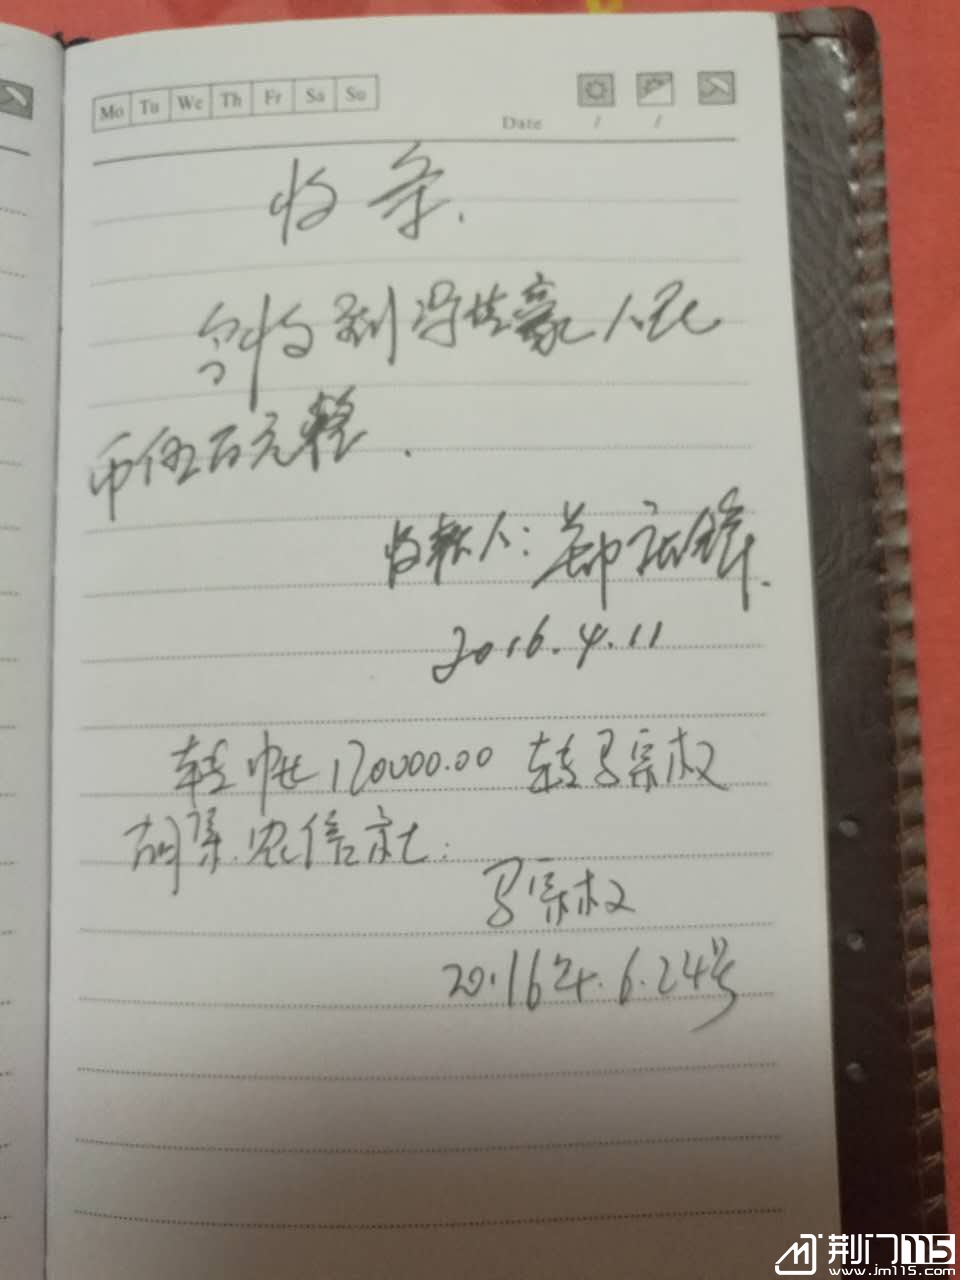 Mo Tu We Th Fr Sa Su
Date / /
收条.
今收到冯世豪人民
币伍百元整.
收款人:郑 锋.
2016.4.11
转 120000.00 转马宗权
胡集农信社.
马宗权
2016年.6.24号
荆门115
www.jm115.com